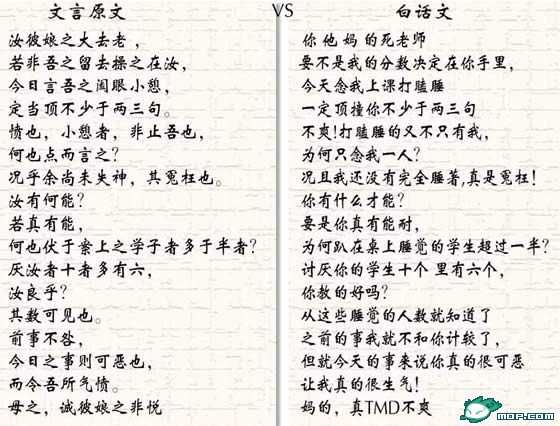 文言原文 VS 白话文
汝彼娘之大去老，
若非吾之留去操之在汝，
今日言吾之闔眼小憩，
定当顶不少于两三句。
愤也，小憩者，非止吾也，
何也点而言之？
况乎余尚未失神，其冤枉也。
汝有何能？
若真有能，
何也伏于案上之学子者多于半者？
厌汝者十者多有六，
汝良乎？
其数可见也。
前事不咎，
今日之事则可恶也，
而令吾所气愤。
母之，诚彼娘之非悦
你他妈的死老师
要不是我的分数决定在你手里，
今天念我上课打瞌睡
一定顶撞你不少于两三句
不爽!打瞌睡的又不只有我，
为何只念我一人?
况且我还没有完全睡著,真是冤枉!
你有什么才能?
要是你真有能耐，
为何趴在桌上睡觉的学生超过一半?
讨厌你的学生十个 里有六个，
你教的好吗?
从这些睡觉的人数就知道了
之前的事我就不和你计较了，
但就今天的事来说你真的很可恶
让我真的很生气!
妈的，真TMD不爽
MOP.COM